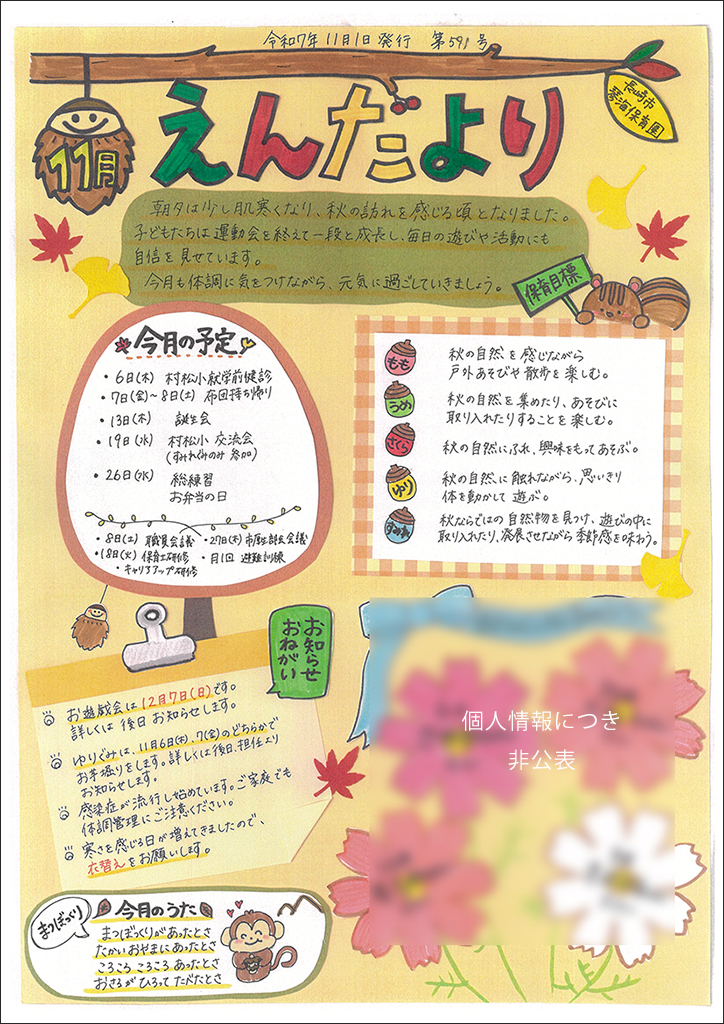 令和7年11月1日発行 第591号
長崎市
琴海保育園
11月
えんだより
朝夕は少し肌寒くなり、秋の訪れを感じる頃となりました。
子どもたちは運動会を終えて一段と成長し、毎日の遊びや活動にも
自信を見せています。
今月も体調に気をつけながら、元気に過ごしていきましょう。
保育目標
今月の予定
・6日(木) 村松小就学前健診
・7日(金)~8日(土) 布団持ち帰り
・13日(木) 誕生会
・19日(水) 村松小 交流会
(すみれぐみのみ 参加)
・26日(水) 総練習
お弁当の日
・8日(土) 職員会議
・27日(木)
・18日(火) 保育士研修
・月1回 避難訓練
・キャリアアップ研修
もも
秋の自然を感じながら
戸外あそびや散歩を楽しむ。
うめ
秋の自然を集めたり、あそびに
取り入れたりすることを楽しむ。
さくら
秋の自然にふれ、興味をもってあそぶ。
ゆり
秋の自然に触れながら、思いきり
体を動かして遊ぶ。
すみれ
秋ならではの自然物を見つけ、遊びの中に
取り入れたり、発展させながら季節感を味わう。
お知らせ
おねがい
お遊戯会は12月7日(日)です。
詳しくは後日お知らせします。
ゆりぐみは、11月6日(木)、7(金)のどちらかで
お芋掘りをします。詳しくは後日、担任より
お知らせします。
感染症が流行し始めています。ご家庭でも
体調管理にご注意ください。
寒さを感じる日が増えてきましたので、
衣替えをお願いします。
個人情報につき
非公表
まつぼっくり
今月のうた
まつぼっくりがあったとさ
たかいおやまにあったとさ
ころころ ころころ あったとさ
おさるがひろってたべたとさ